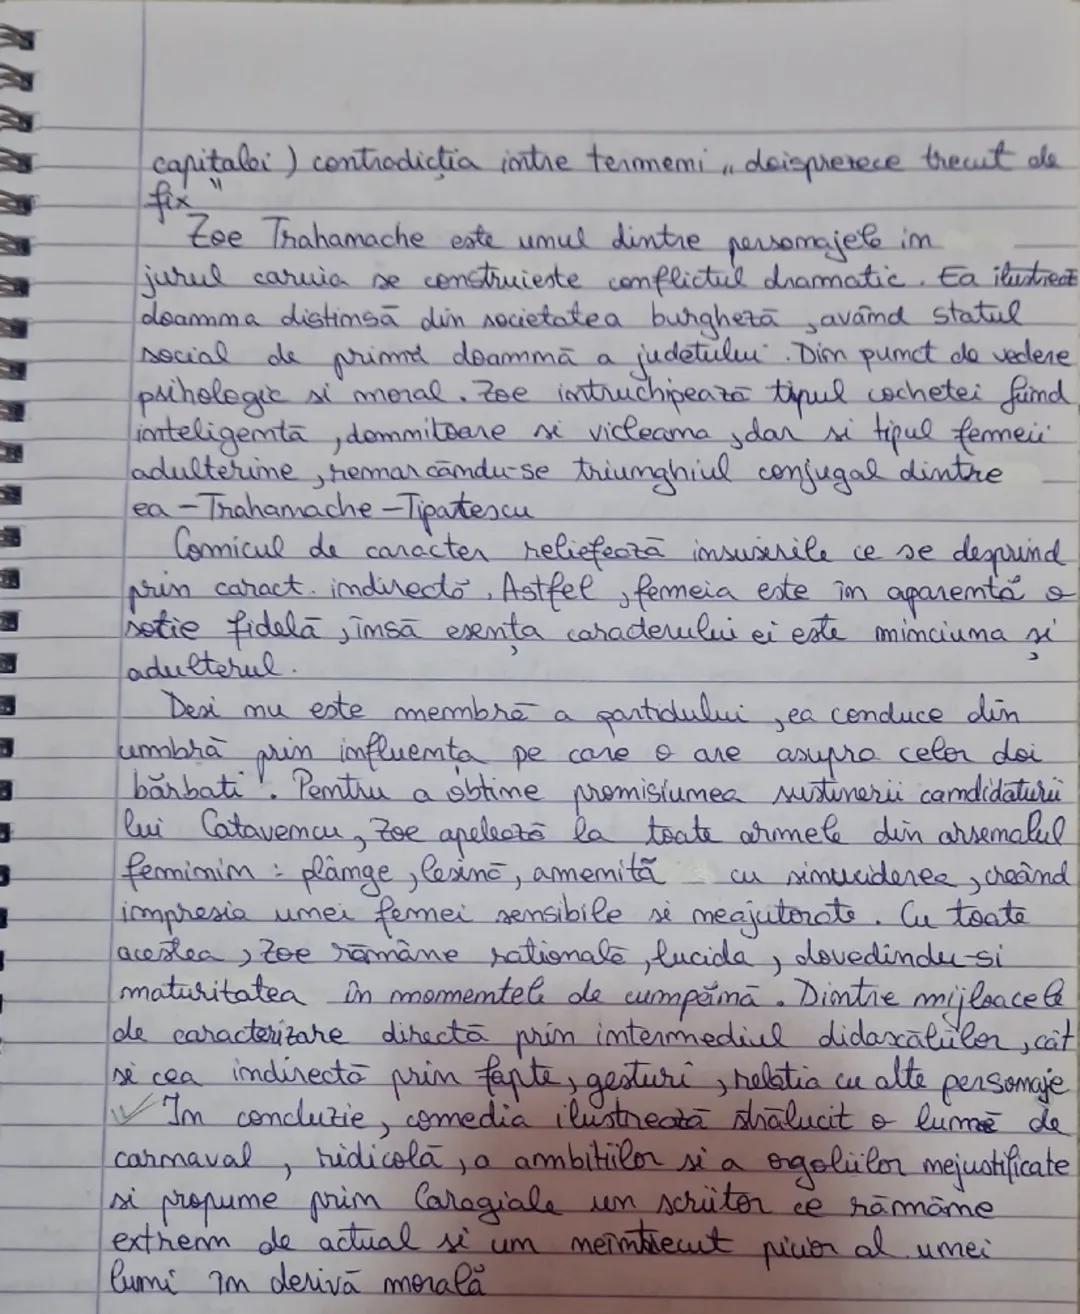 capitalei) contradicția intre termeni „doisprezece trecut de
fix"
Zoe Trahamache este unul dintre personajele in
jurul caruia se construieste conflictul dramatic. Ea ilustrează
doamna distinsă din societatea burgheză, având statul
social de primă doamnă a județului. Din punct de vedere
psihologic si moral. Zoe intruchipează tipul cochetei fiind
inteligentă, domnitoare si vicleana, dar si tipul femeii
adulterine, remarcându-se triunghiul conjugal dintre
ea - Trahamache - Tipatescu
Comicul de caracter reliefează insusirile ce se desprind
prin caract. indirectă. Astfel, femeia este în aparentă o
sotie fidelă, însă esența caracterului ei este minciuna și
adulterul.
Desi nu este membră a partidului, ea conduce din
umbră prin influența pe care o are asupra celor doi
bărbati. Pentru a obtine promisiunea sustinerii candidaturii
lui Catavencu, Zoe apelează la toate armele din arsenalul
feminim: plânge, lesină, amenită cu sinuciderea, creând
impresia unei femei sensibile si neajutorate. Cu toate
acestea, Zoe rămâne ratională, lucida, dovedindu-si
maturitatea în momentele de cumpănă. Dintre mijloacele
de caracterizare directă prin intermediul didascaliilor, cât
si cea indirectă prin fapte, gesturi, relatia cu alte personaje
In concluzie, comedia ilustrează strălucit o lume de
carnaval, ridicolă, a ambitiilor si a orgoliilor nejustificate
si propune prin Caragiale un scriitor ce rămâne
extrem de actual si un neîntrecut pictor al unei
lumi în derivă morală